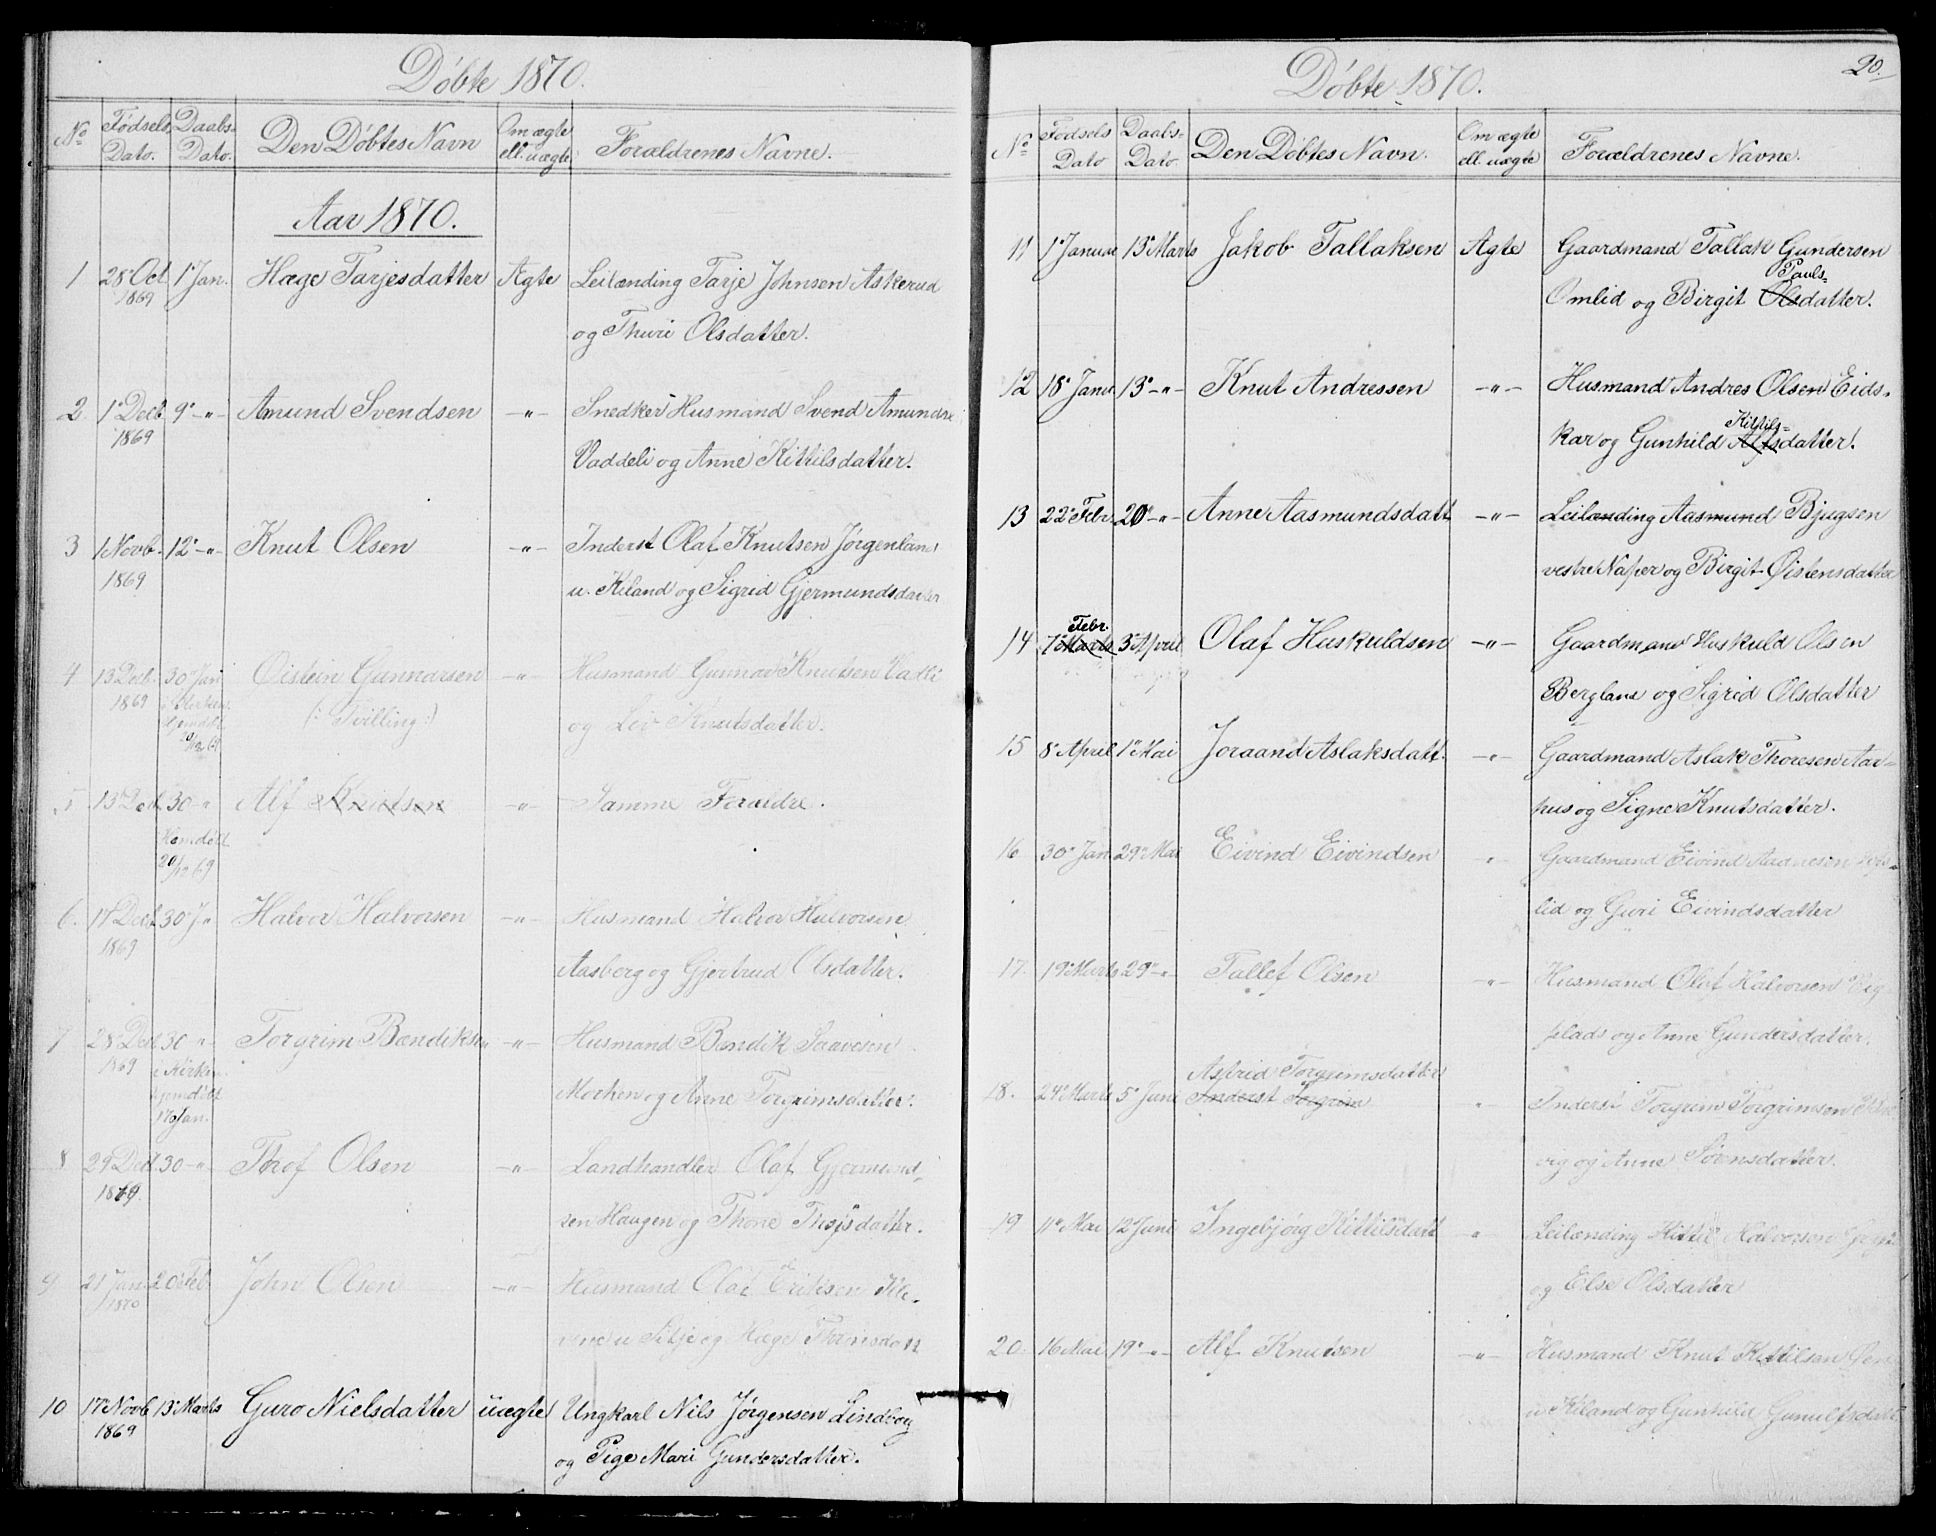 Döbte 1870.
No Fødsels Dato. Daabs- Dato. Den Döbtes Navn Om ægte ell. uægte Forældrenes Navne.
Aar 1870.
1 28 Oct 1869 1 Jan. Hæge Tarjesdatter Ægte Leilænding Tarje Johnsen Askerud
og Thuri Olsdatter.
2. 1 Decb 1869 9 -"- Amund Svendsen -"- Snedker Husmand Svend Amundse
Vaddeli og Anne Kittilsdatter.
3 1 Novb. 1869 12 -"- Knut Olsen -"- Inderst Olaf Knutsen Jørgenland
u. Kiland og Sigrid Gjermundsdatter
4 13 Decb. 1869 30 Jan i Kirken Øistein Gunnarsen -"- Husmand Gunnar Knutsen
20/12 69 (: Tvilling :) og Liv Knutsdatter.
5 13 Decb 30 -"- Alf Knutsen -"- Samme Forældre.
Hjemdöbt
20/12 69
6. 17 Decb 1869 30 J" Halvor Halvorsen -"- Husmand Halvor Halvorsen
Aasberg og Gjertrud Olsdatter.
7 28 Decb 1869 30 -"- Torgrim Bendiksen -"- Husmand Bendik Saavesen
i Kirken Hjemdöbt Jan. Morken og Anne Torgrimsdatter.
8 29 Decb 1869. 30 -"- Thof Olsen -"- Landhandler Olaf Gjermund-
sen Haugen og Thone datter.
9 21 Jan 1870 20 Feb John Olsen -"- Husmand Olaf Eriksen
u og Hæge
10 17 Novb 1869 13 Marts Guro Nielsdatter uægte Ungkarl Nils Jørgensen Lindborg
og Pige Mari Gundersdatter.
20.
Döbte 1870.
No Fødsels Dato Daabs- Dato. Den Döbtes Navn. Om ægte ell. uægte Forældrenes Navne.
11 1 Januar 13 Marts Jakob Tallaksen Ægte Gaardmand Tallak Gundersen
Pauls-
Omlid og Birgit Olsdatter.
12 18 Janu 13 -"- Knut Andressen -"- Husmand Andres Olsen Eids-
Kittils-
kar og Gunhild Alfsdatter.
13 22 Febr. 20 -"- Anne Aasmundsdatt -"- Leilænding Aasmund Bjugsen
vestre Naper og Birgit Øistensdatter
Febr.
14 7 Marts 3 April Olaf Huskuldsen -"- Gaardmand Huskuld Olsen
Bergland og Sigrid Olsdatter
15 8 April 1 Mai Joraand Aslaksdatt. -"- Gaardmand Aslak Thoresen Aar-
hus og Signe Knutsdatter.
16 30 Jan 29 Mai Eivind Eivindsen " Gaardmand Eivind Aadnesen
lid og Guri Eivindsdatter
17. 19 Marts 29 -"- Tallef Olsen -"- Husmand Olaf Halvorsen
plads og Anne Gundersdatter.
Astrid Torgrimsdatter
18. 24 Marts 5 Juni Inderst Torgrim " Inderst Torgrim Torgrimsen
vig og Anne Sörensdatter.
19 11 Mai 12 Juni Ingebjørg Kittilsdatt " Leilænding Kittil Halvorsen
og Else Olsdatter
20. 16 Mai 19 -"- Alf Knutsen -"- Husmand Knut Kittilsen
u Kiland og Gunhild Gunulfsdatt